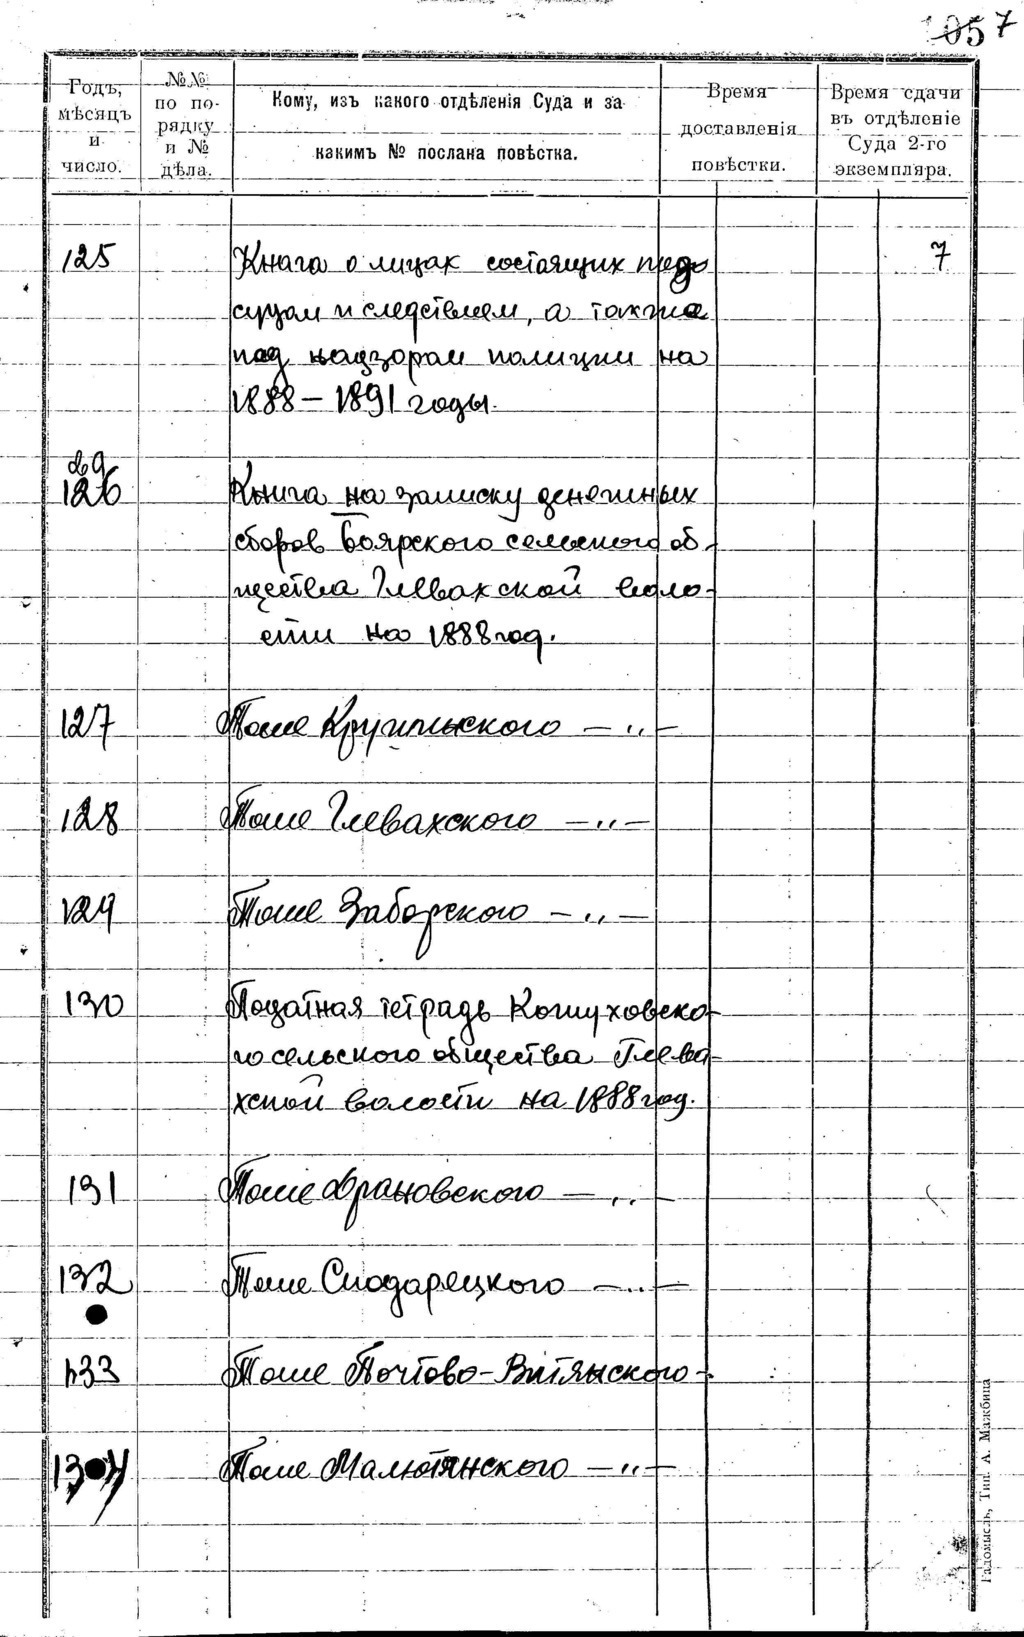 1057
Годъ, мѣсяцъ и число.
№№ по порядку и № дѣла.
Кому, изъ какого отдѣленія Суда и за какимъ № послана повѣстка.
Время доставленія повѣстки.
Время сдачи въ отдѣленіе Суда 2-го экземпляра.
125 Книга о лицах состоящих под 7
судом и следствием, а также
под надзором полиции на
1888 – 1891 годы.
126 Книга на записку денежных
сборов Боярского сельского об-
щества Глевахской воло-
сти на 1888 год.
127 Тоже Кругильского — " —
128 Тоже Глевахского — " —
129 Тоже Заборского — " —
130 Податная тетрадь Кожуховско-
го сельского общества Глева-
хской волости на 1888 год.
131 Тоже Крановского — " —
132 Тоже Сподарецкого — " —
133 Тоже Почтово-Витянского -
134 Тоже Малютянского — " —
Радомысль, Тип. А. Мажбица